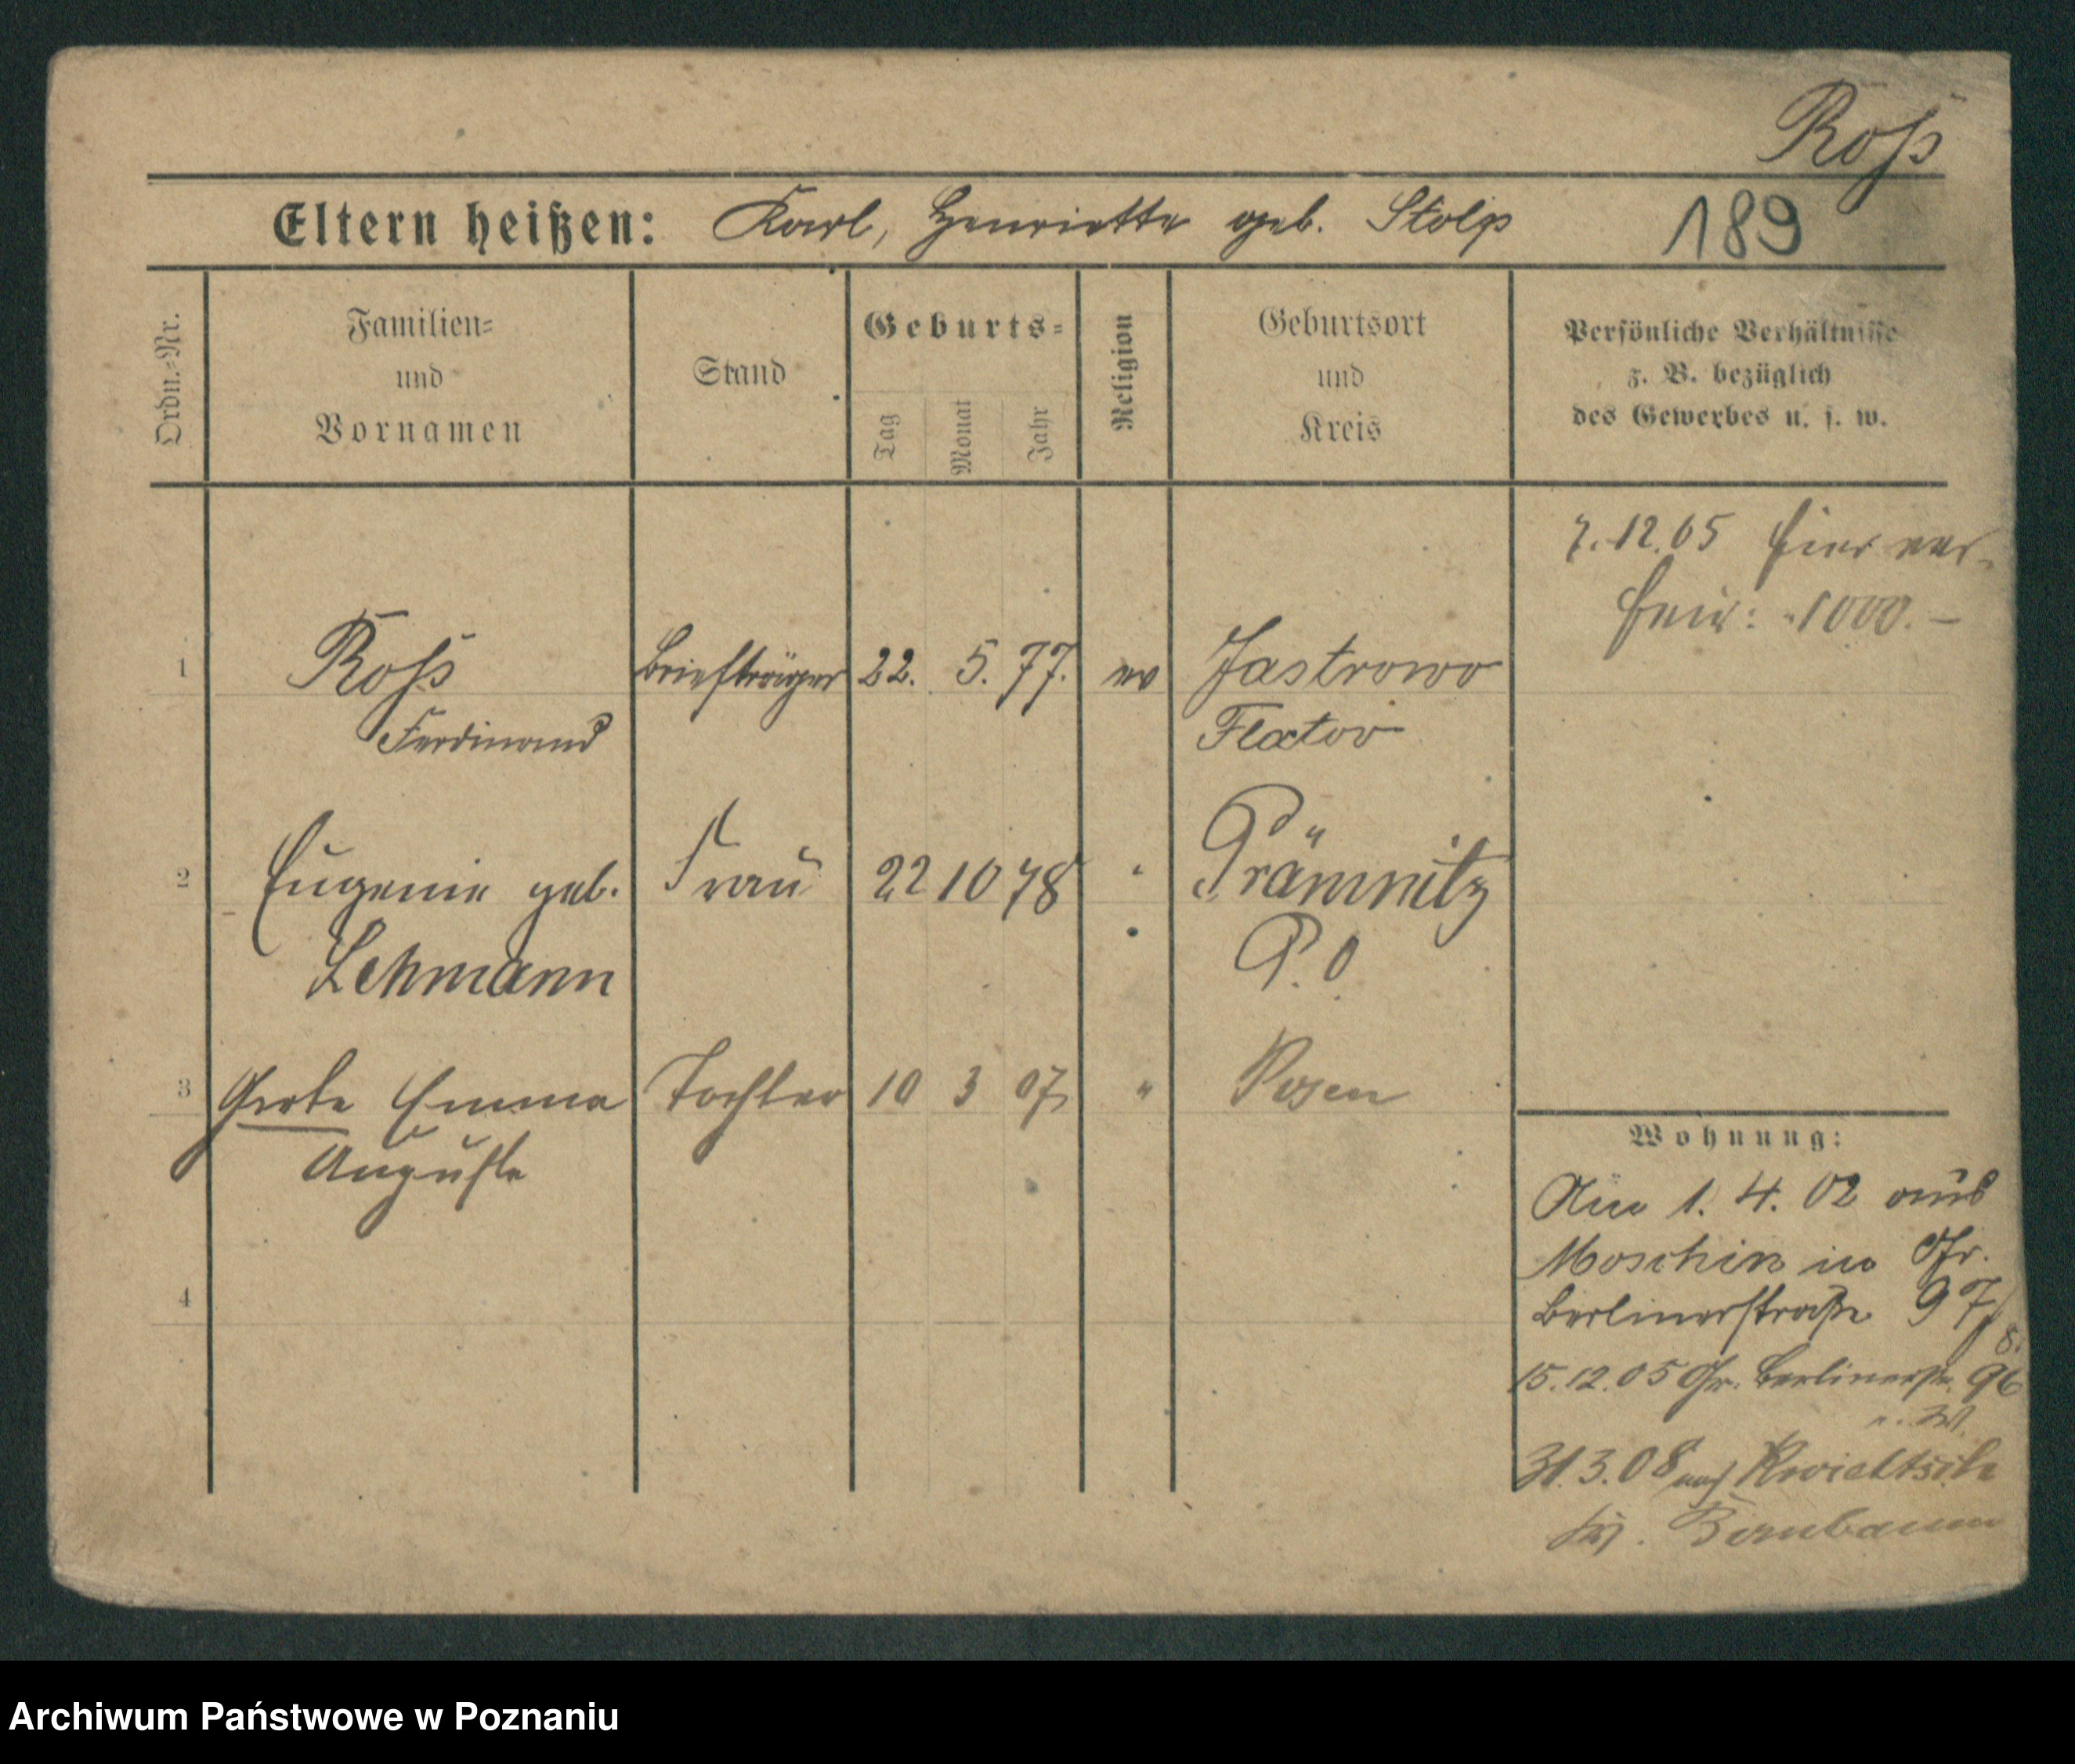 Roß
Eltern heißen: Karl, Henriette geb. Stolp
189
Ordn.-Nr.
Familien-
und
Vornamen
Stand
Geburts-
Tag
Monat
Jahr
Religion
Geburtsort
und
Kreis
Persönliche Verhältnisse
z. B. bezüglich
des Gewerbes u. s. w.
7.12.05 hier ver-
heir: 1000.–
1 Roß Briefträger 22. 5. 77. ev Jastrowo
Ferdinand Flatow
2 Eugenie geb. Frau 22 10 78 " Prämnitz
Lehmann P. O
3 Grete Emma Tochter 10 3 07 " Posen
Auguste
4
Wohnung:
Am 1. 4. 02 aus
Moschin in Gr.
Berlinerstraße 97/
8.
15.12.05 Gr. Berlinerstr. 96
31.3.08 nach Kwieltsch
Krs. Birnbaum
Archiwum Państwowe w Poznaniu